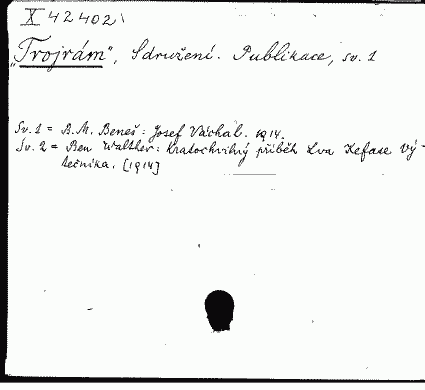 X 42402
„Trojrám", Sdružení. Publikace, sv. 1
Sv. 1 = B. M. Beneš: Josef Váchal. 1914.
Sv. 2 = Ben Walther: Kratochvilný příběh Lva Kefase vý-
tečníka. [1914]